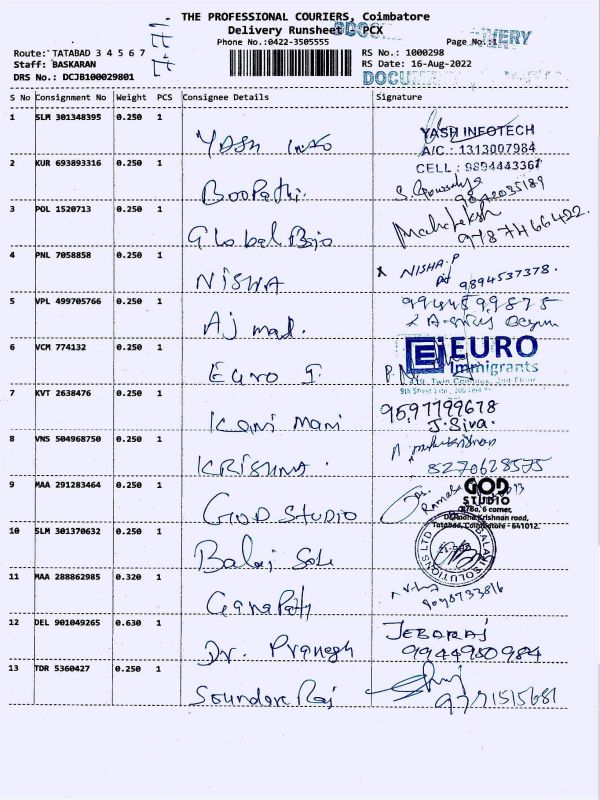 THE PROFESSIONAL COURIERS, Coimbatore
Delivery Runsheet PCX
Phone No.:0422-3505555 Page No.:1
Route: TATABAD 3 4 5 6 7 RS No.: 1000298
Staff: BASKARAN RS Date: 16-Aug-2022
DRS No.: DCJB100029801
S No Consignment No Weight PCS Consignee Details Signature
1 SLM 301348395 0.250 1 Yash Info YASH INFOTECH
A/C.: 1313007984
CELL: 9894443367
2 KUR 693893316 0.250 1 Boopathi.
3 POL 1520713 0.250 1 Global Bajo 9787466422.
4 PNL 7058858 0.250 1 NISHA X NISHA.P
9894537378.
5 VPL 499705766 0.250 1 Aj mad.
6 VCM 774132 0.250 1 Euro I. EI EURO
Immigrants
7 KVT 2638476 0.250 1 Kani Mani 9597799678
J.Siva.
8 VNS 504968750 0.250 1 KRISHNA.
8270628575
9 MAA 291283464 0.250 1 GOD STUDIO GOD
STUDIO
Tatabad, Coimbatore - 641012.
10 SLM 301370632 0.250 1 Balaj
11 MAA 288862985 0.320 1 Ganapathy
12 DEL 901049265 0.630 1 Dr. Pranegh JEBARAJ
9944950984
13 TDR 5360427 0.250 1 Soundara Raj
9791515681